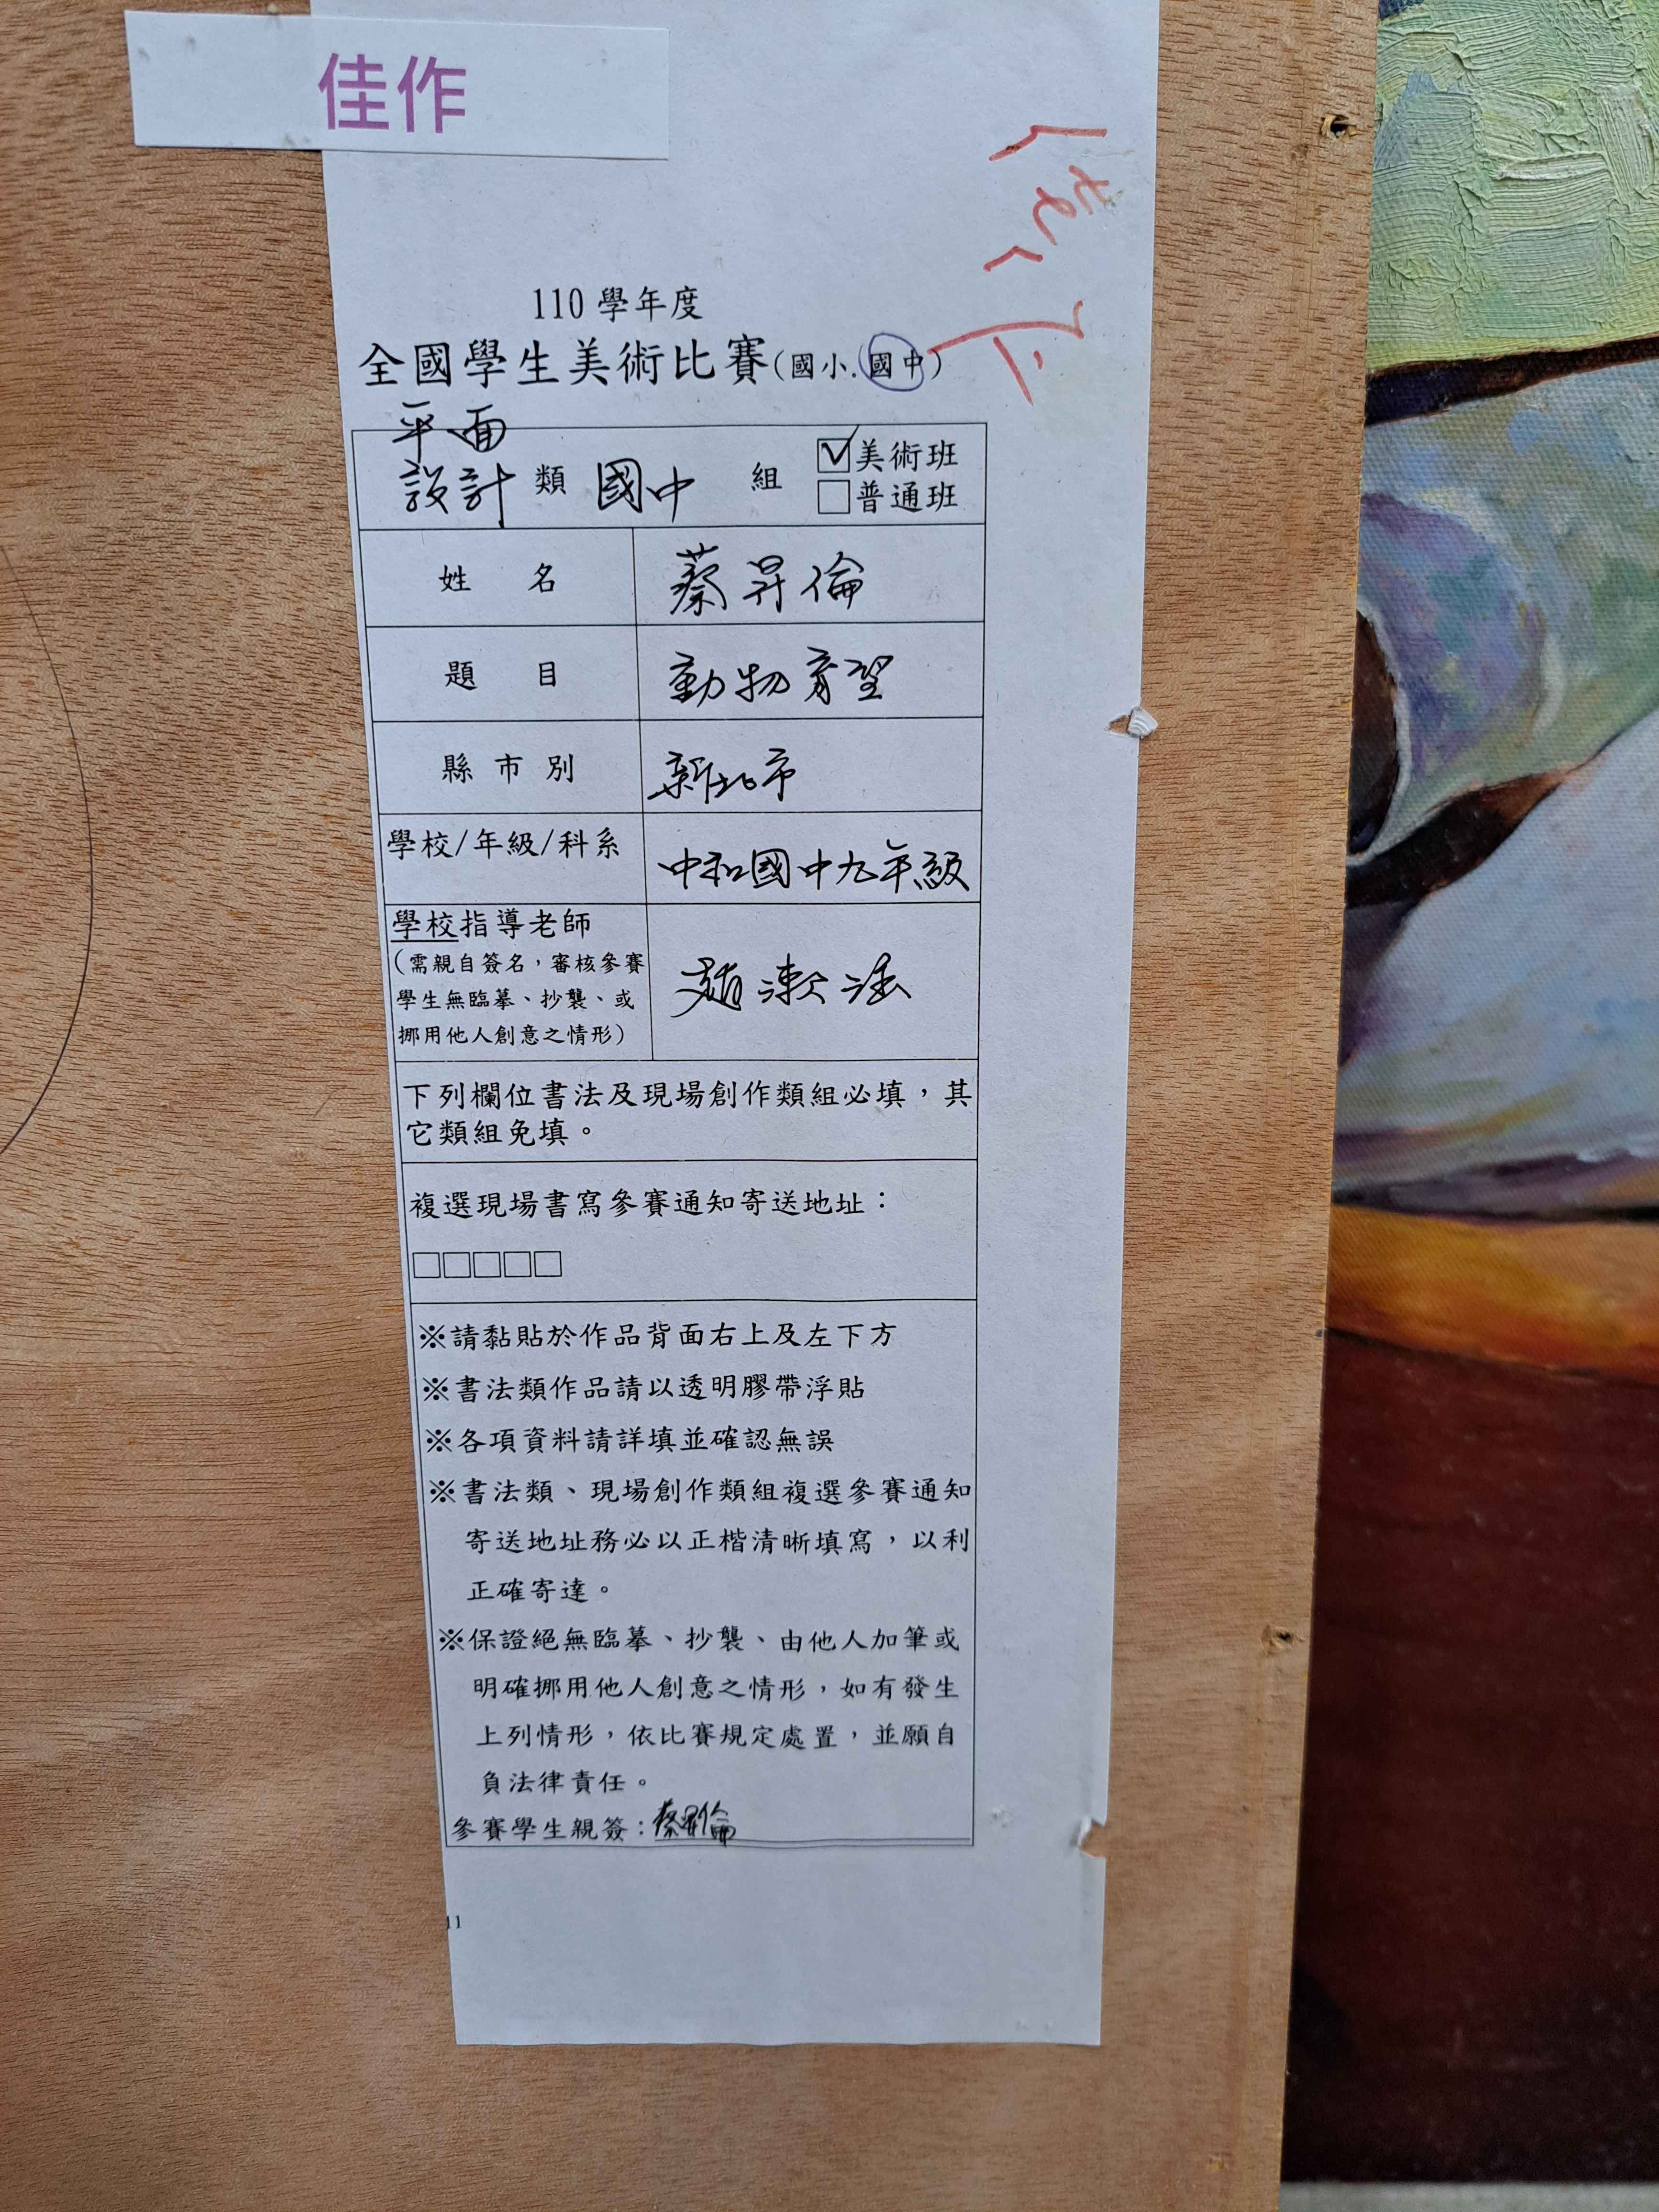 佳作
110 學年度
全國學生美術比賽(國小.國中)
平面
設計 類 國中 組
☑美術班
□普通班
姓 名 蔡昇倫
題 目 動物育望
縣 市 別 新北市
學校/年級/科系 中和國中九年級
學校指導老師
(需親自簽名,審核參賽
學生無臨摹、抄襲、或
挪用他人創意之情形)
趙漱
下列欄位書法及現場創作類組必填,其
它類組免填。
複選現場書寫參賽通知寄送地址:
□□□□□
※請黏貼於作品背面右上及左下方
※書法類作品請以透明膠帶浮貼
※各項資料請詳填並確認無誤
※書法類、現場創作類組複選參賽通知
寄送地址務必以正楷清晰填寫,以利
正確寄達。
※保證絕無臨摹、抄襲、由他人加筆或
明確挪用他人創意之情形,如有發生
上列情形,依比賽規定處置,並願自
負法律責任。
參賽學生親簽:蔡昇倫
11